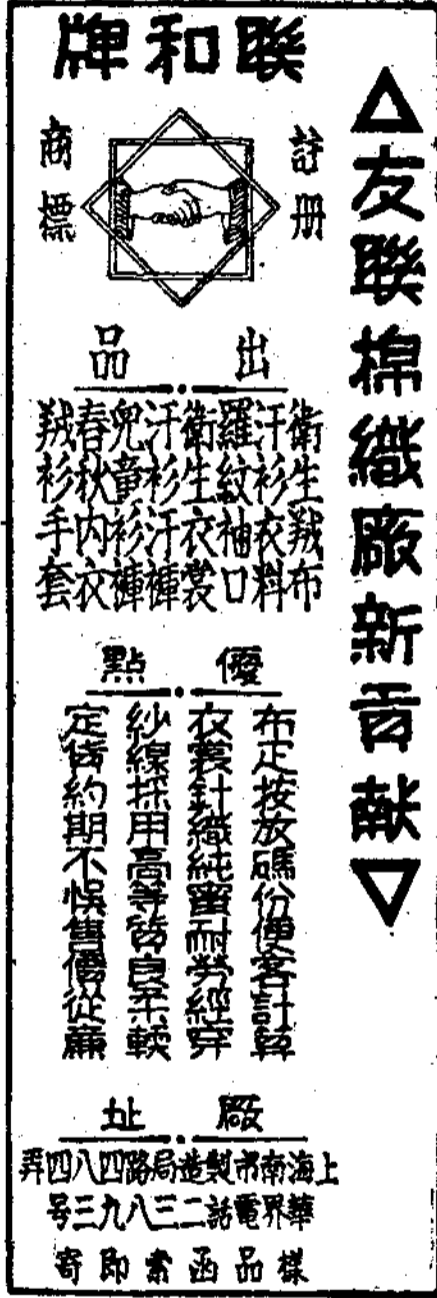 △友聯棉織廠新貢献▽
聯和牌
註册
商標
出品
衛生羢布
汗衫衣料
羅紋袖口
衛生衣裳
汗衫汗褲
兒童衫褲
春秋内衣
羢衫手套
優點
布疋按放碼份便客計算
衣裳針織純蜜耐勞經穿
紗線採用高等質良柔輭
定貨約期不悞售價從廉
廠址
上海南市製造局路四八四弄
華界電話二三八九三号
樣品函索即寄